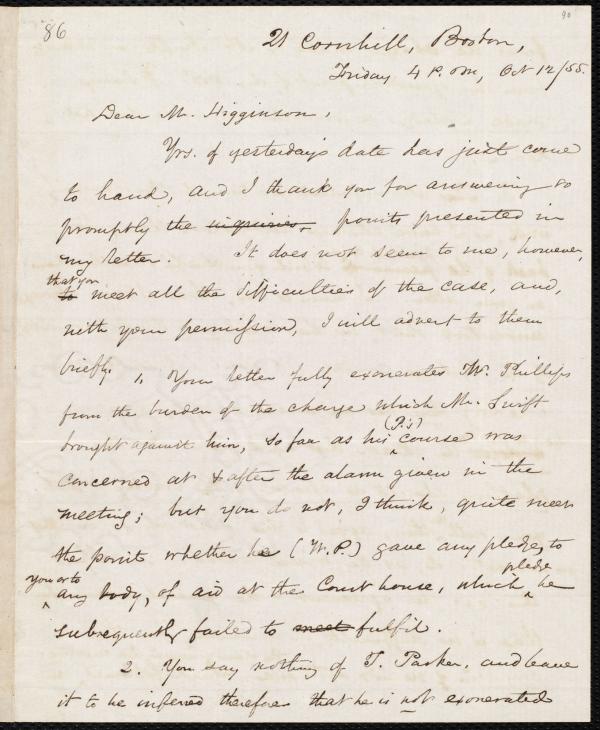 86
90
21 Cornhill, Boston,
Friday 4 P.M., Oct 12/55.
Dear Mr. Higginson,
Yrs. of yesterday's date has just come
to hand, and I thank you for answering so
promptly the inquiries, points presented in
my letter. It does not seem to me, however,
that you
to meet all the difficulties of the case, and,
with your permission, I will advert to them
briefly. 1. Your letter fully exonerates W. Phillips
from the burden of the charge which Mr. Swift
(P.'s)
brought against him, so far as his course was
concerned at & after the alarm given in the
meeting; but you do not, I think, quite meet
the point whether he (W.P.) gave any pledge, to
you or to
pledge
any body, of aid at the Court house, which he
subsequently failed to meet fulfil.
2. You say nothing of T. Parker, and leave
it to be inferred therefore that he is not exonerated